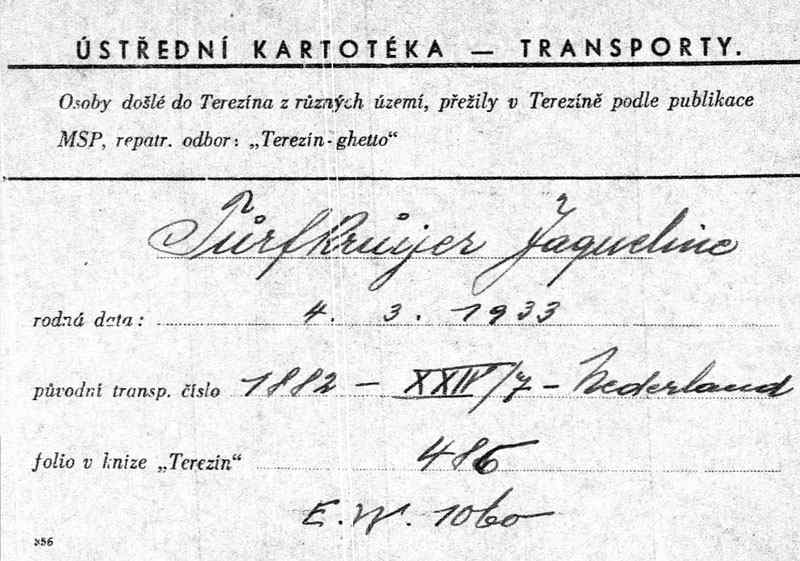 ÚSTŘEDNÍ KARTOTÉKA — TRANSPORTY.
Osoby došlé do Terezína z různých území, přežily v Terezíně podle publikace
MSP, repatr. odbor: „Terezín-ghetto“
Tůrfkrůijer Jaqueline
rodná data: 4. 3. 1933
původní transp. číslo 1882 — XXIV/7 — Nederland
folio v knize „Terezín“ 486
E.W. 1060